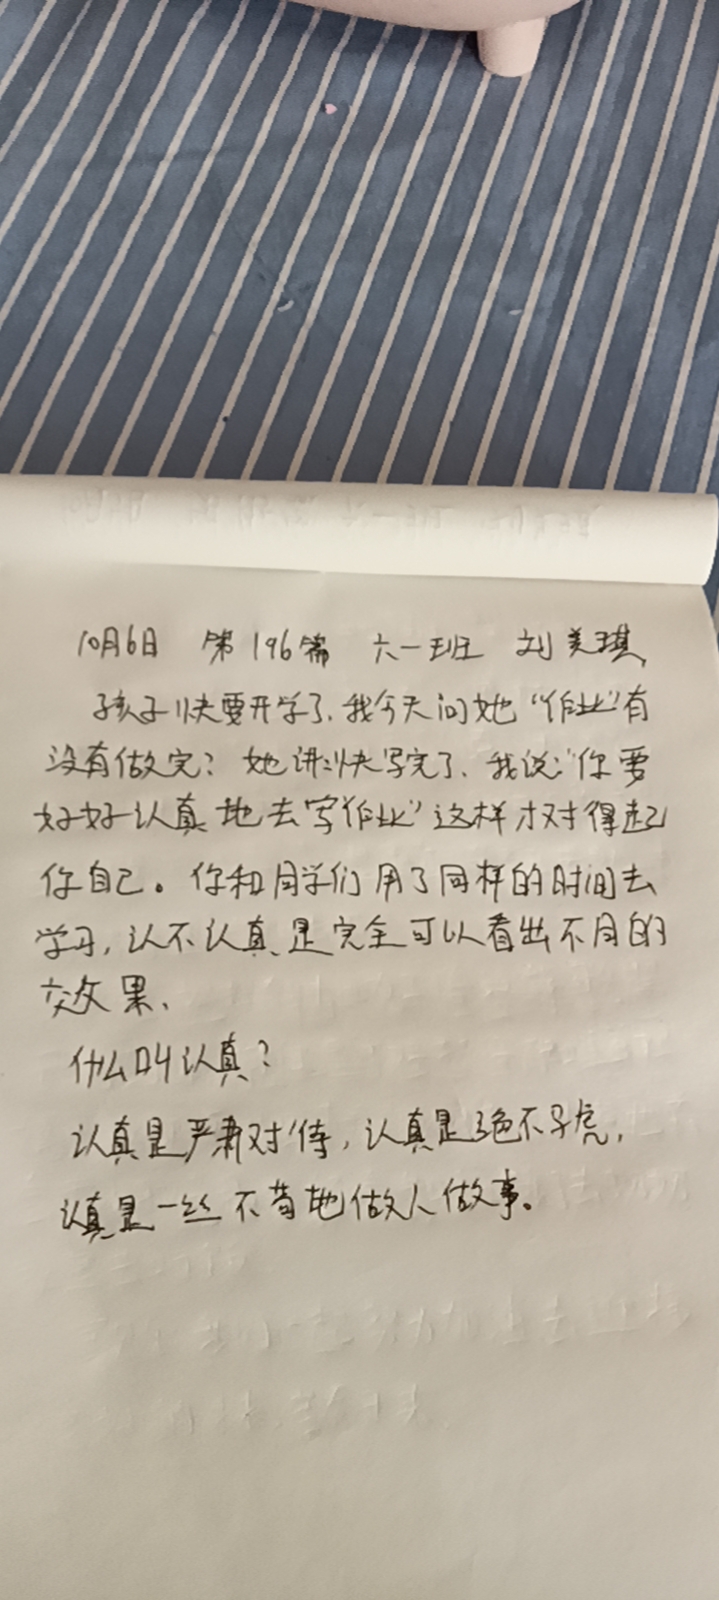 10月6日 第196篇 六一班 刘美琪
孩子快要开学了.我今天问她“作业”有
没有做完?她讲:快写完了.我说:“你要
好好认真地去写作业”这样才对得起
你自己。你和同学们用了同样的时间去
学习,认不认真是完全可以看出不同的
效果.
什么叫认真?
认真是严肃对待,认真是绝不子虎,
认真是一丝不苟地做人做事。